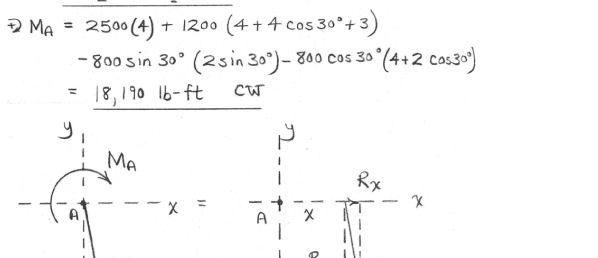 ⤵ MA = 2500(4) + 1200 (4+4 cos 30°+3)
-800 sin 30° (2 sin 30°) - 800 cos 30° (4+2 cos 30°)
= 18,190 lb-ft CW
y y
MA
Rx
A x = A x x
R